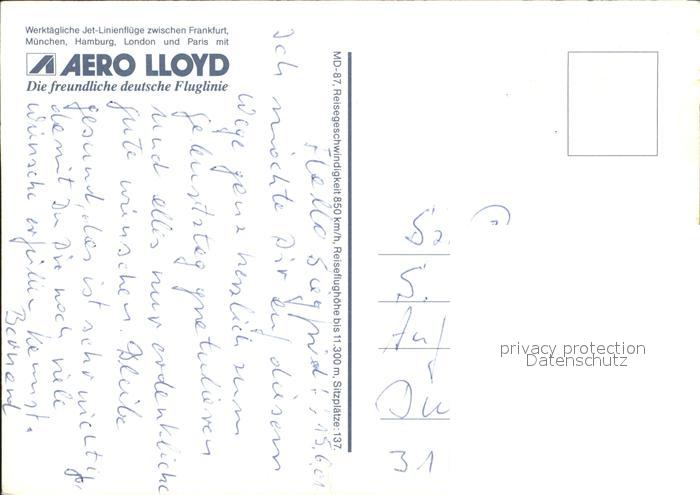 Werktägliche Jet-Linienflüge zwischen Frankfurt,
München, Hamburg, London und Paris mit
AERO LLOYD
Die freundliche deutsche Fluglinie
MD-87, Reisegeschwindigkeit 850 km/h, Reiseflughöhe bis 11.300 m, Sitzplätze: 137.
Hallo Siegfried!, 15.6.01
Ich möchte Dir auf diesem
Wege ganz herzlich zum
Geburtstag gratulieren
und alles nur erdenkliche
gute wünschen. Bleibe
gesund, das ist sehr wichtig,
damit Du Dir noch viele
Wünsche erfüllen kannst.
Bernard
S.
Auf
31
privacy protection
Datenschutz